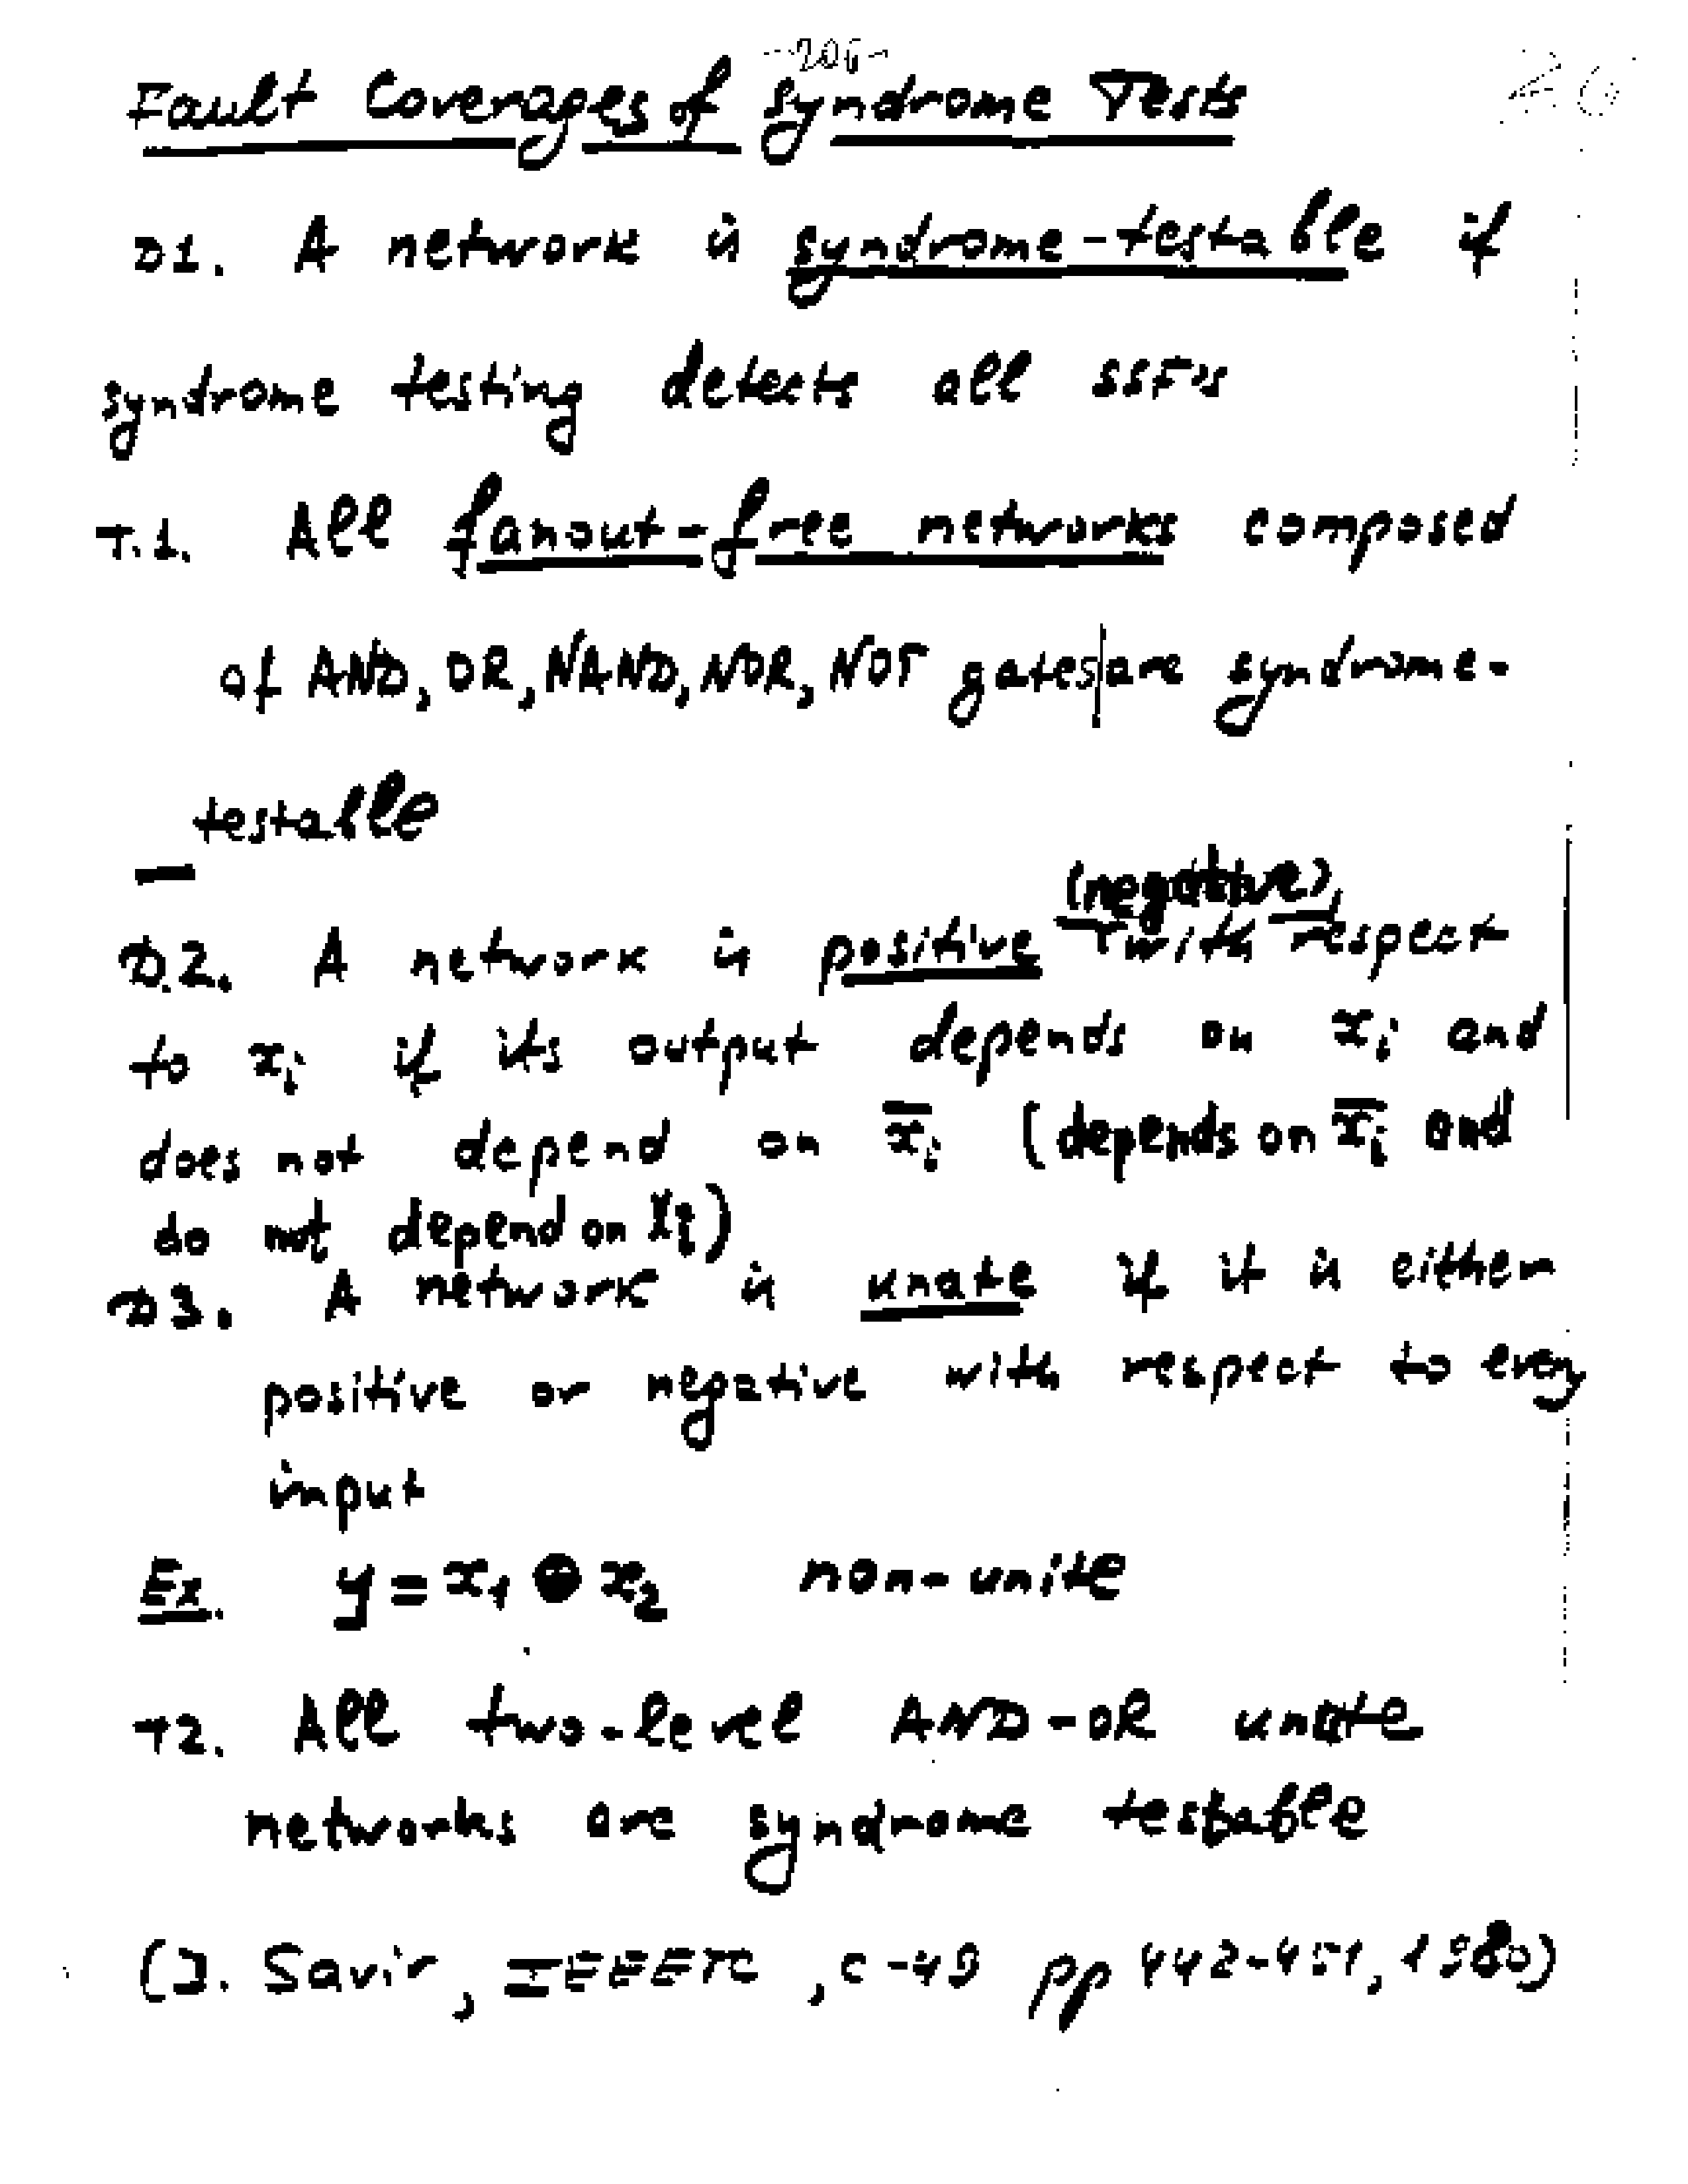 -206-
26
Fault Coverages of Syndrome Tests
D1. A network is syndrome-testable if
syndrome testing detects all SSF's
T.1. All fanout-free networks composed
of AND, OR, NAND, NOR, NOT gates|are syndrome-
testable
(negative)
D.2. A network is positive with respect
to xᵢ if its output depends on xᵢ and
does not depend on x̄ᵢ (depends on x̄ᵢ and
do not depend on xᵢ)
D3. A network is unate if it is either
positive or negative with respect to every
input
Ex. y = x₁ ⊕ x₂ non-unite
T2. All two-level AND-OR unate
networks are syndrome testable
(J. Savir, IEEETC, C-49 pp 442-451, 1980)